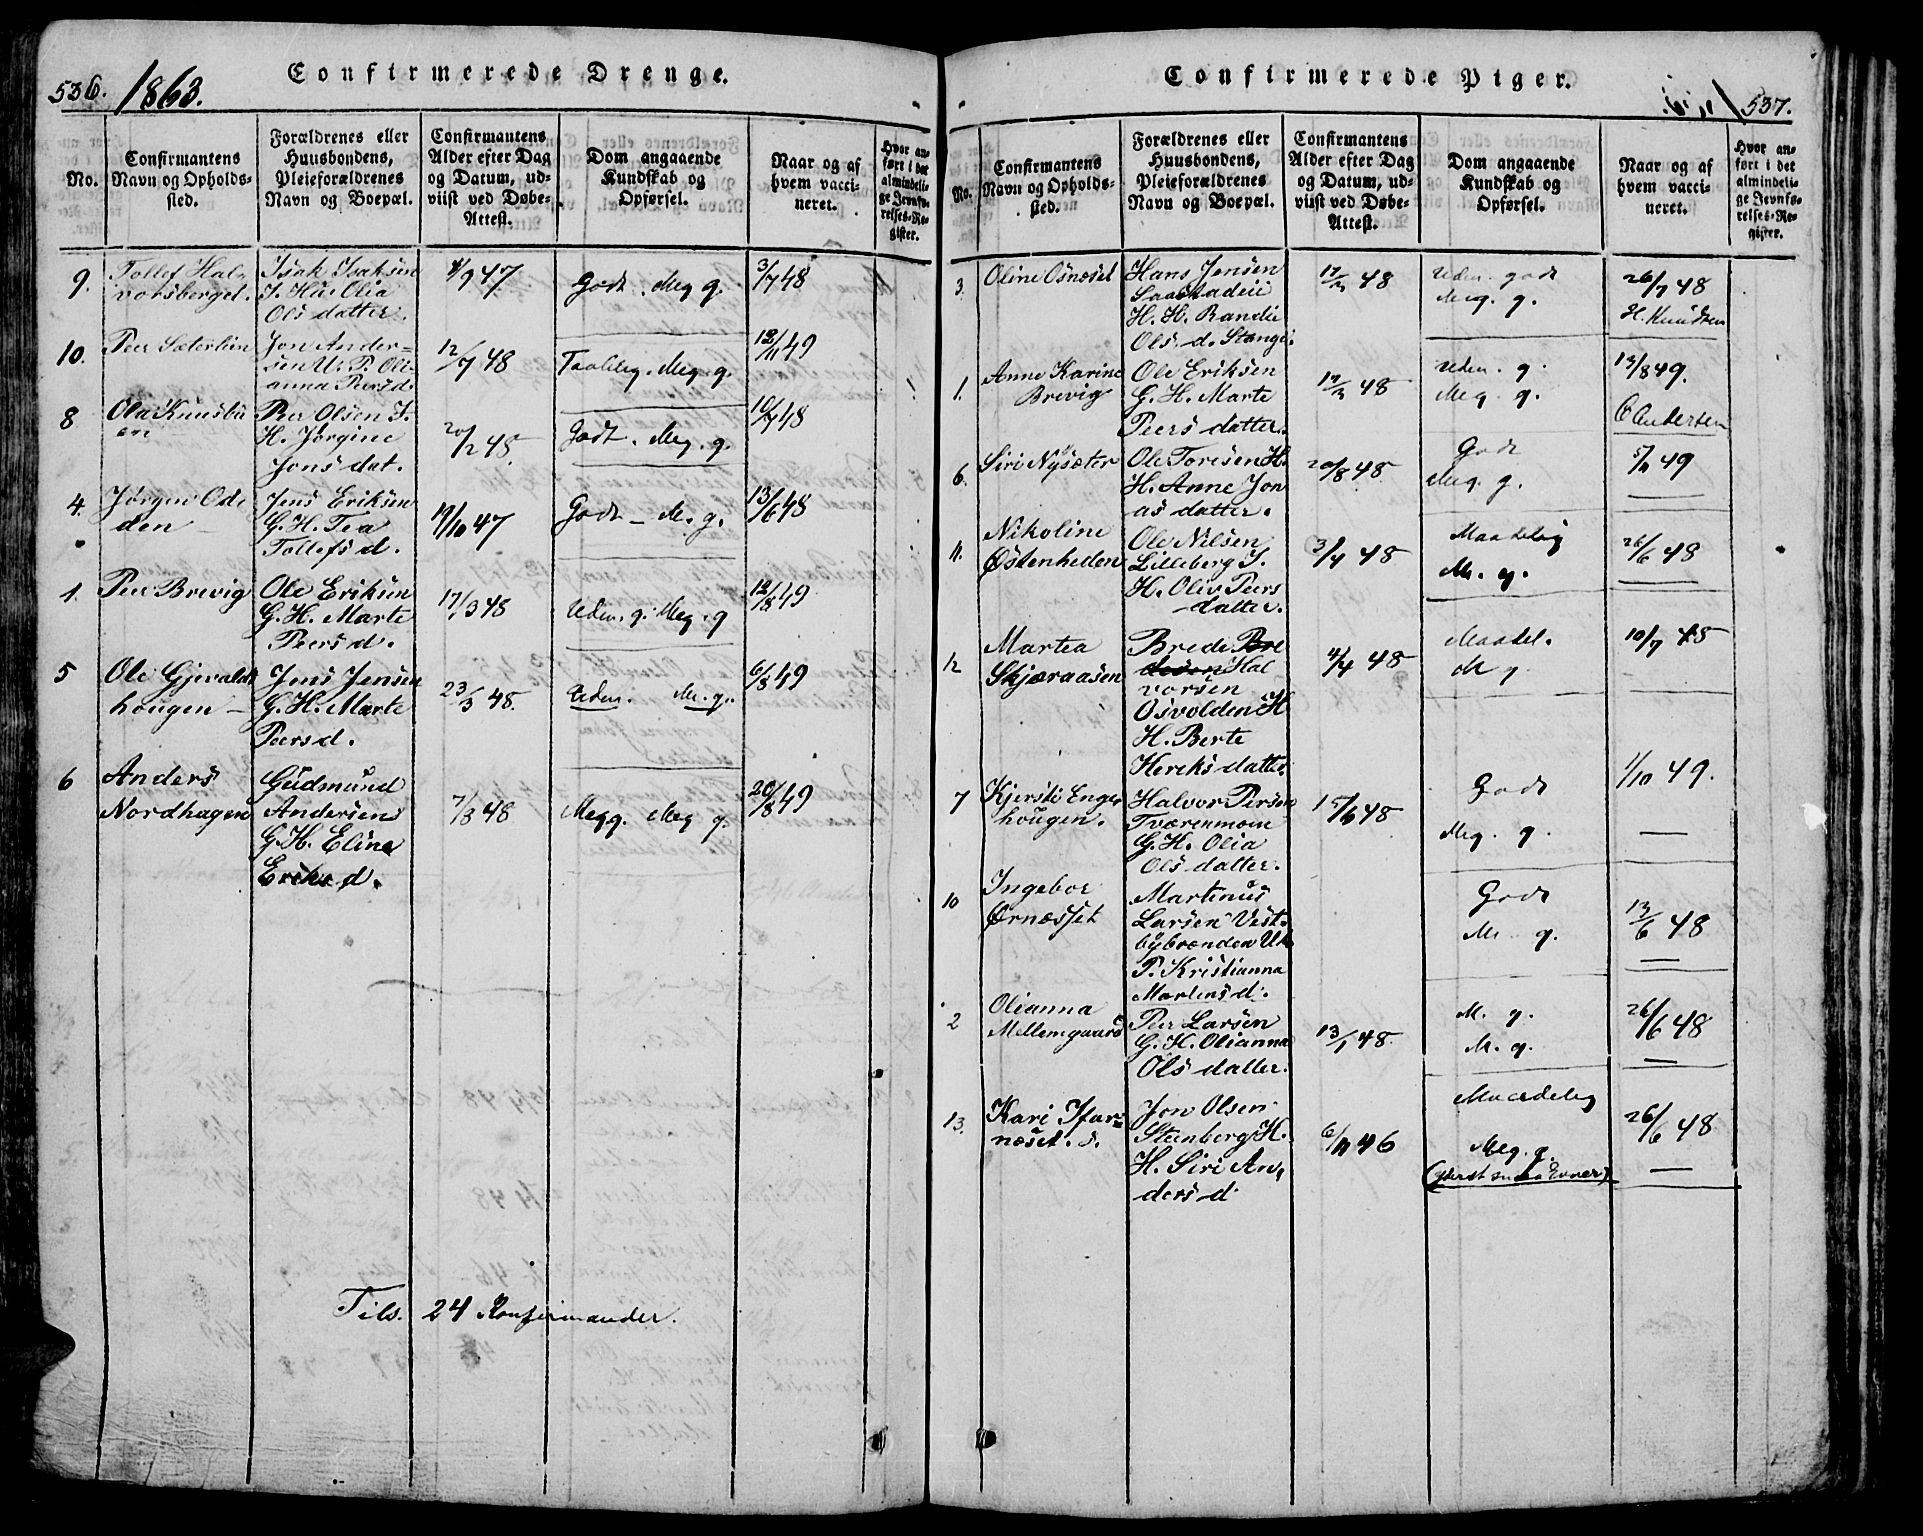 536. 1863. Confirmerede Drenge.
No.
Confirmantens
Navn og Opholds-
sted.
Forældrenes eller
Huusbondens,
Pleieforældrenes
Navn og Boepæl.
Confirmantens
Alder efter Dag
og Datum, ud-
viist ved Døbe-
Attest.
Dom angaaende
Kundskab og
Opførsel.
Naar og af
hvem vacci-
neret.
Hvor an-
ført i det
almindeli-
ge Jevnfø-
relses-Re-
gister.
9. Tollef Hal-
vorsberget.
Isak Isaksen
J. Hu. Olia
Ols datter.
/9 47
Godt. Meg g.
3/7 48
10. Peer Sæterlien
Jon Ander-
sen U. P. Oli-
anna Peersd.
12/7 48
Taalelig. Meg. g.
12/11 49
8 Ola Knusba
en
Per Olsen J.
H. Jørgine
Jons dat.
20/2 48.
Godt. Meg. g.
10/7 48
4. Jørgen Ode
den
Jens Eriksen
G. H. Tea
Tollefs d.
19/10 47
Godt - M. g.
13/6 48
1. Peer Brevig
Ole Eriksen
G. H. Marte
Peers d.
17/3 48
Uden. g. Meg. g
12/8 49
5 Ole Gjevaldt
hougen -
Jens Jensen
G. H. Marte
Peers d.
23/3 48.
Uden. M. g.
6/8 49
6 Anders
Nordhagen
Gudmund
Andersen
G. H. Eline
Eriks d.
7/3 48
Megg. Meg g.
20/8 49
Tils. 24 Konfirmander.
Confirmerede Piger. 537.
No.
Confirmantens
Navn og Opholds-
sted.
Forældrenes eller
Huusbondens,
Pleieforældrenes
Navn og Boepæl.
Confirmantens
Alder efter Dag
og Datum, ud-
viist ved Døbe-
Attest.
Dom angaaende
Kundskab og
Opførsel.
Naar og af
hvem vacci-
neret.
Hvor an-
ført i det
almindeli-
ge Jevnfø-
relses-Re-
gister.
3. Oline Osnæset
Hans Jensen
H. H. Randie
Ols. d. Stange.
48
Uden. godt
Meg. g.
26/7 48
H. Knudsen
1. Anne Karine
Brevig
Ole Eriksen
G. H. Marte
Peers datter.
17/3 48
Uden. g.
Meg. g.
13/8 49.
C Andersen
6. Siri Nysæter
Ole Toresen H.
H. Anne Jon
as datter.
20/8 48
Godt
Meg. g.
49
11. Nikoline
Østenheden
Ole Nilsen
Lilleberg J.
H. Oliv Peers
datter.
3/4 48
Maadelig
M. g.
26/6 48
12 Martea
Skjæraasen
Brede Bre
desen Hal
vorsen
Osvolden H
H. Berte
Hereks datter
4/4 48
Maadel.
M g
10/7 48
7 Kjersti Enger
hougen.
Halvor Persen
Tværenmoen
G. H. Olia
Ols datter.
15/6 48
Godt
Meg. g.
1/10 49.
10 Ingebor
Ørnæsset
Martinus
Larsen Vest-
bybrænden Uk
P. Kristianna
Martens d.
Godt
M. g.
13/6 48
2 Olianna
Mellemgaard
Peer Larsen
G. H. Olianna
Ols datter.
13/1 48.
M. g.
M. g.
26/6 48
13. Kari
næset. d.
Jon Olsen
Stenberg H.
H. Siri An-
ders d.
6/11 46
Maadelig
Meg. g.
(yderst smaa Evner)
26/6 48